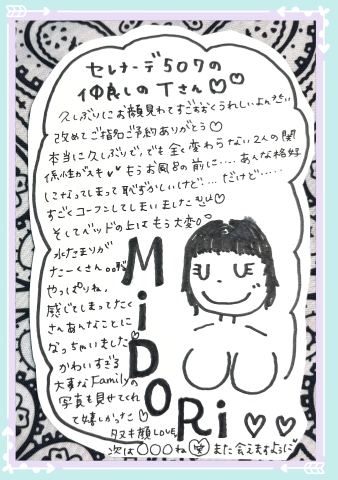 セレナーデ507の
仲良しのTさん♡♡
久しぶりにお顔見れてすごおおくうれしいよんださい
改めてご指名ご予約ありがとう♡
本当に久しぶりで、でも全く変わらない2人の関
係性がスキ もうお風呂の前に…. あんな格好
になってしまって恥ずかしいけど…. だけど……
すごくコーフンしてしまいました
そしてベッドの上はもう大変
水たまりが
たーくさん。。
やっぱりね、
感じてしまってたく
さんあんなことに
なっちゃいました
かわいすぎる
大事なFamilyの
写真も見せてくれ
て嬉しかった♡
タヌキ顔LOVE
次は〇〇〇ね(笑)また会えますように
MiDORi♡♡